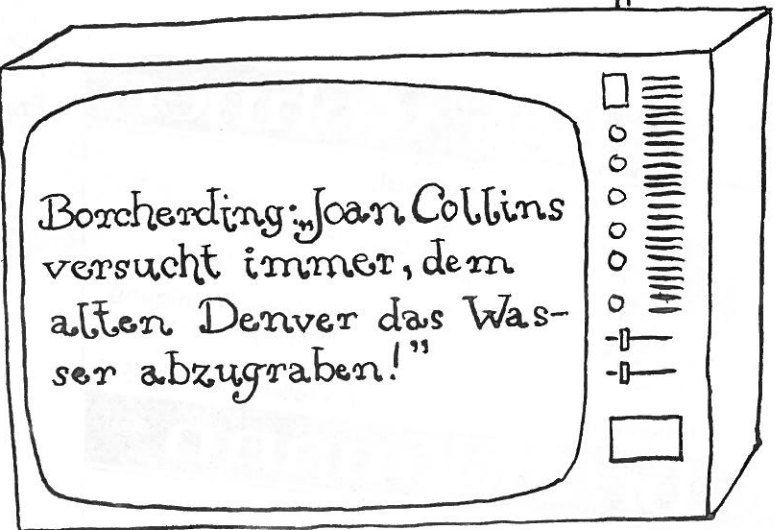 Borcherding: „Joan Collins
versucht immer, dem
alten Denver das Was-
ser abzugraben!”